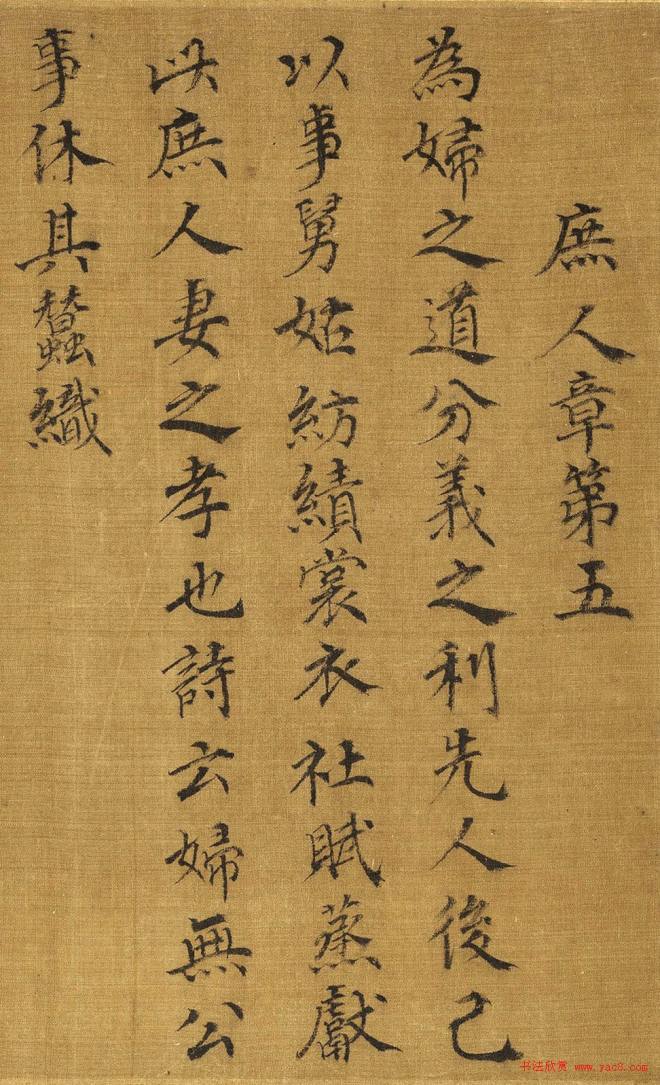 庶人章第五
為婦之道分義之利先人後己
以事舅姑紡績裳衣社賦蒸獻
此庶人妻之孝也詩云婦無公
事休其蠶織
书法欣赏 www.yac8.com